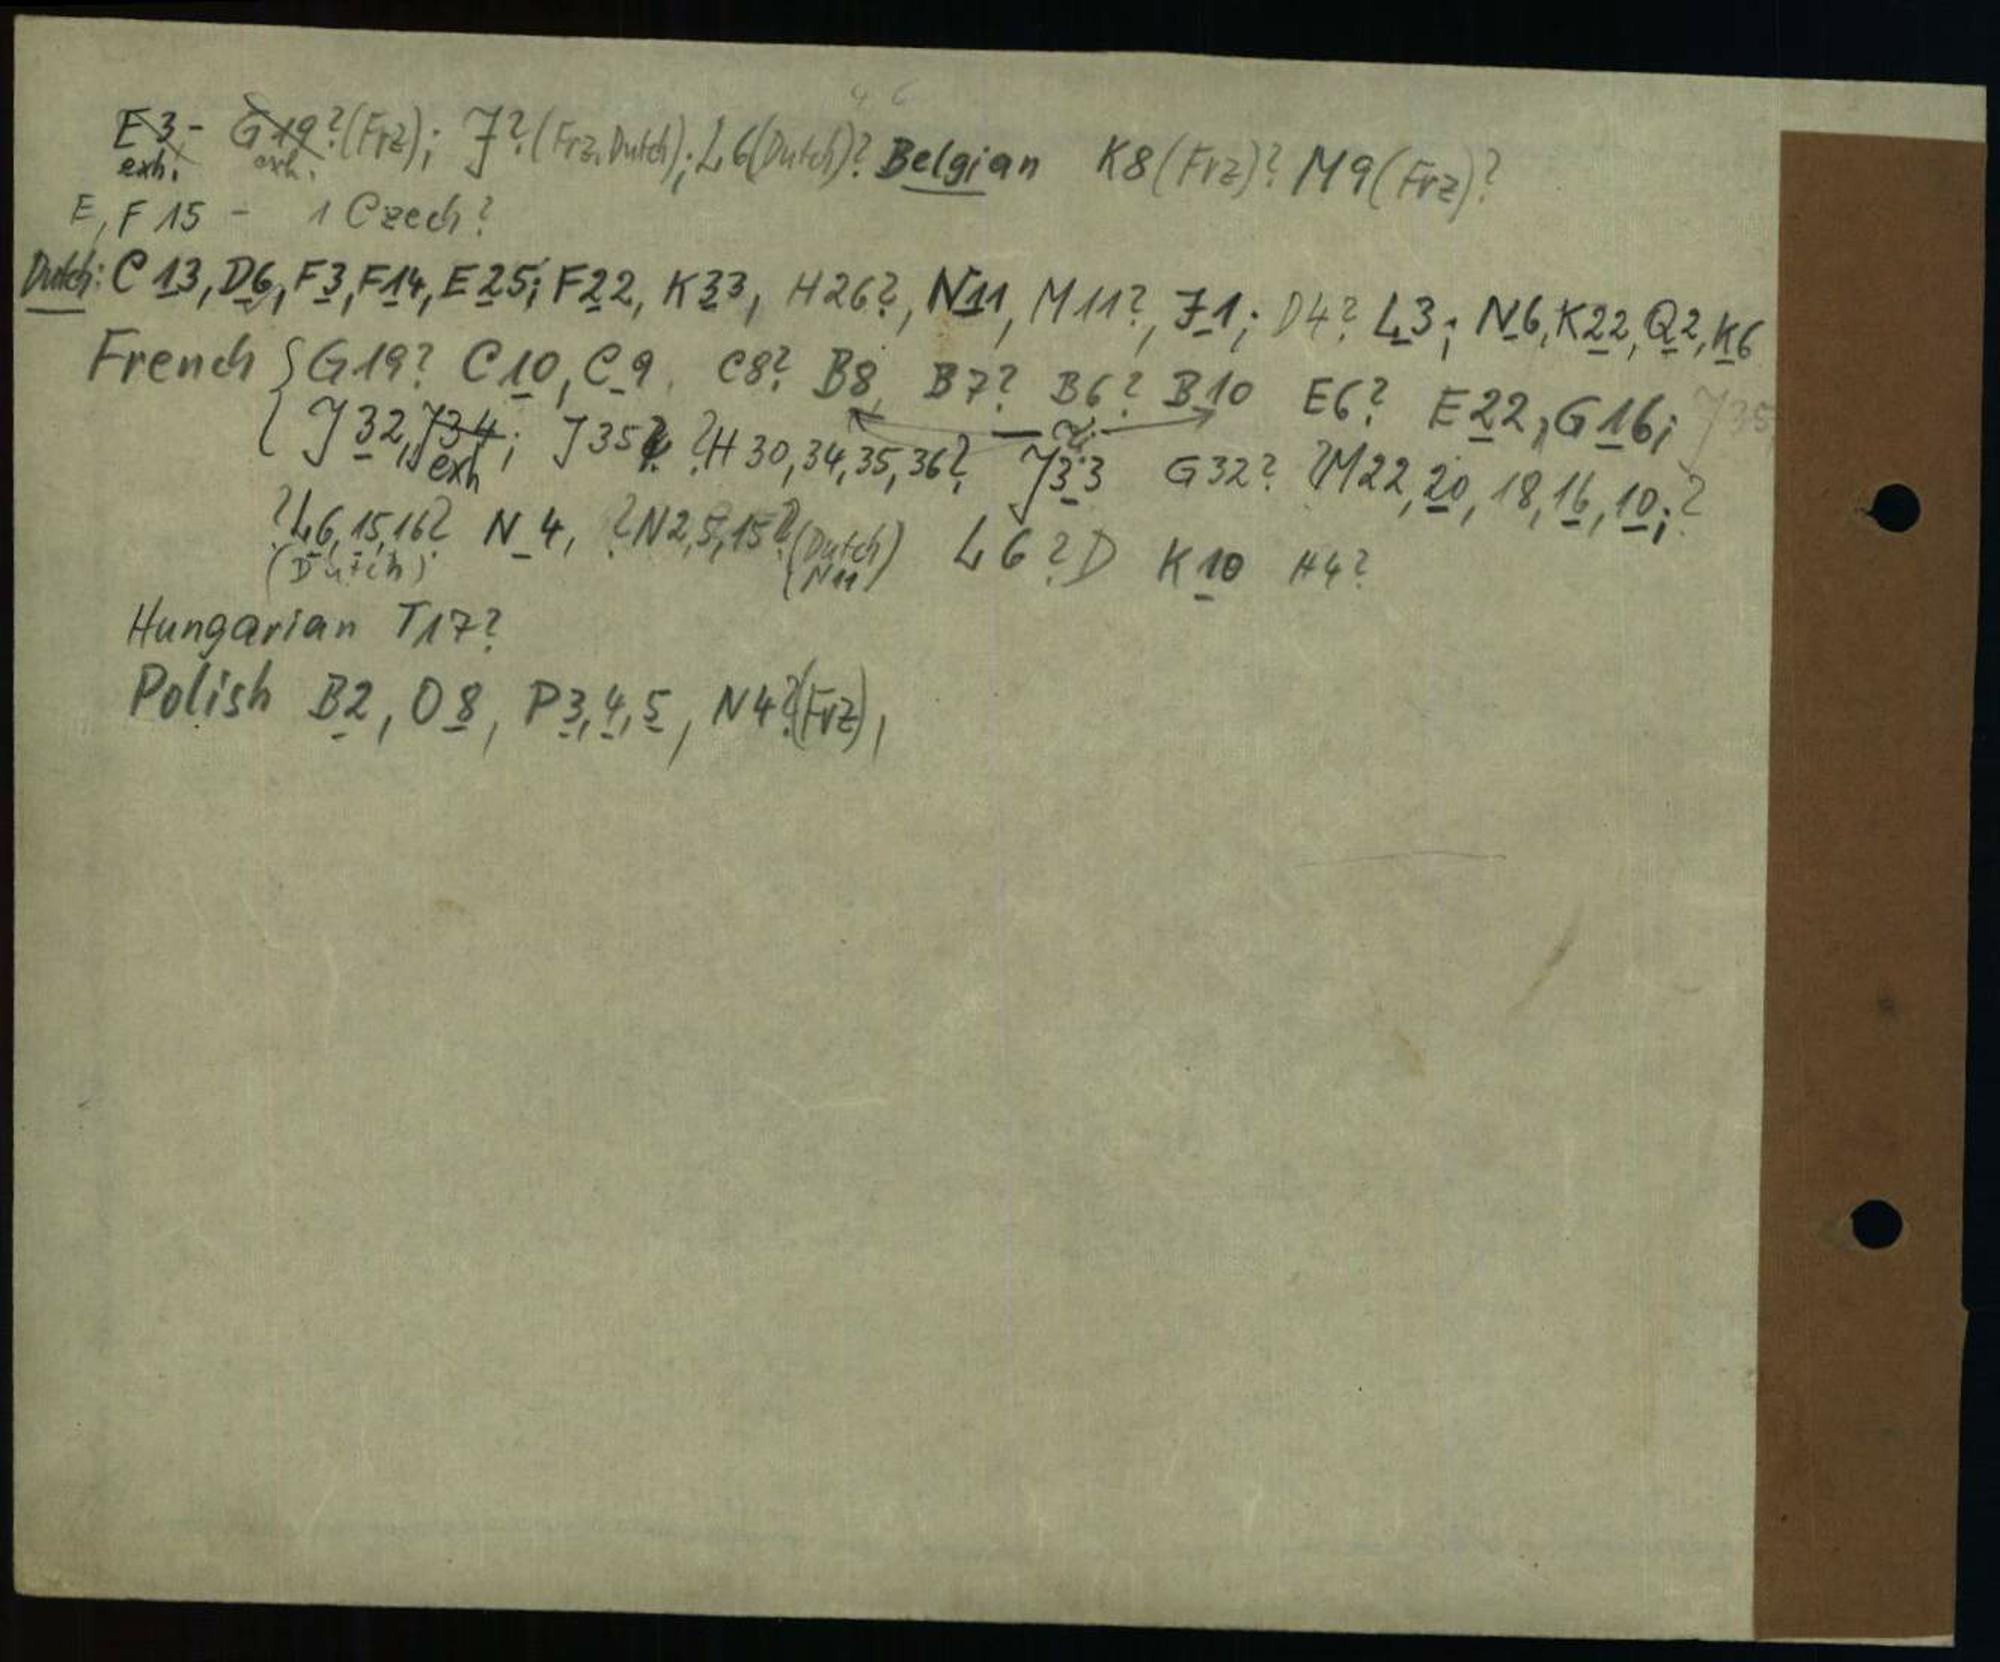 E3,- G19?(Frz); J?(Frz, Dutch); L6(Dutch)? Belgian K8(Frz)? M9(Frz)?
exh. exh.
E, F15 - 1 Czech?
Dutch: C13, D6, F3, F14, E25; F22, K33, H26?, N11, M11?, J1; D4? L3; N6, K22, Q2, K6
French { G19? C10, C9, C8? B8, B7? B6? B10 E6? E22, G16; J35
J32, J34; J35? ?H30,34,35,36? J33 G32? ?M22,20,18,16,10;?
exh
?L6,15,16? N4, ?N2,5,15? (Dutch) L6?D K10 H4?
(Dutch) (N11)
Hungarian T17?
Polish B2, O8, P3,4,5, N4?(Frz),